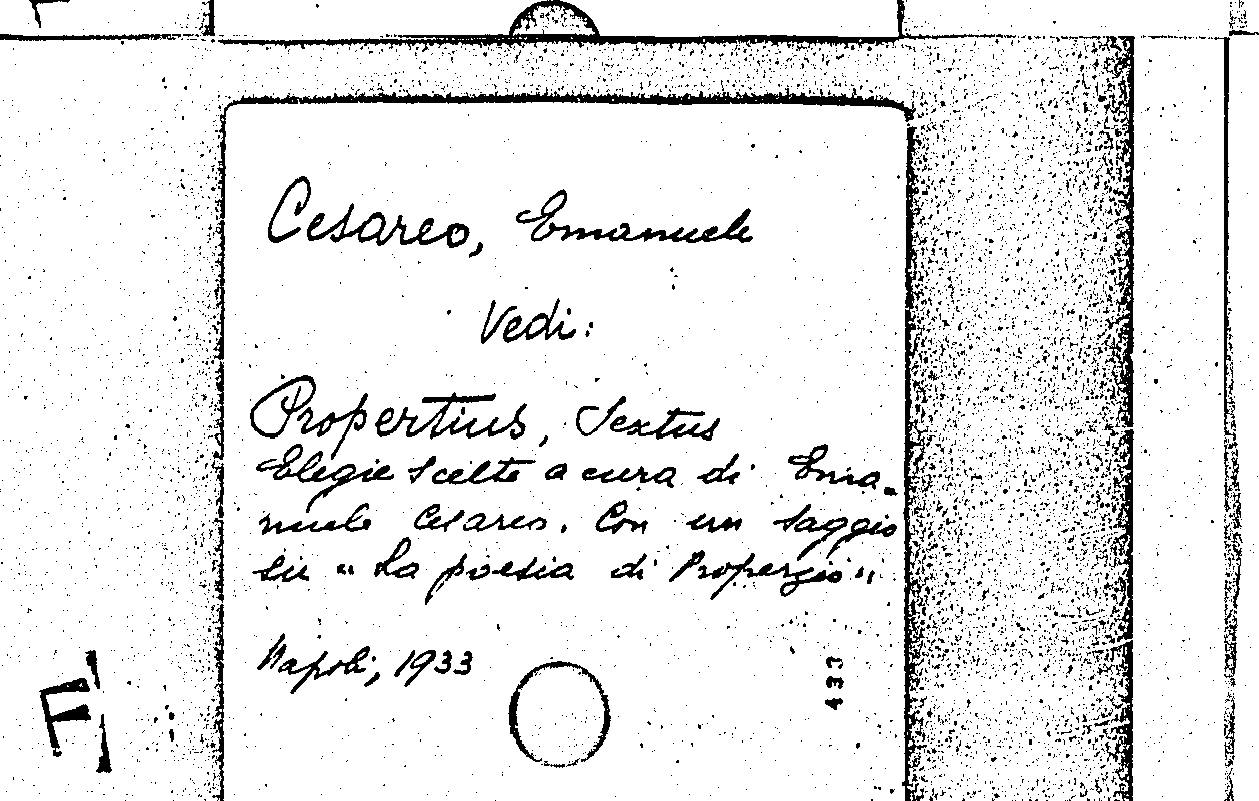 Cesareo, Emanuele
Vedi:
Propertius, Sextus
Elegie scelte a cura di Ema-
nuele Cesareo. Con un saggio
su "La poesia di Properzio".
Napoli, 1933
433